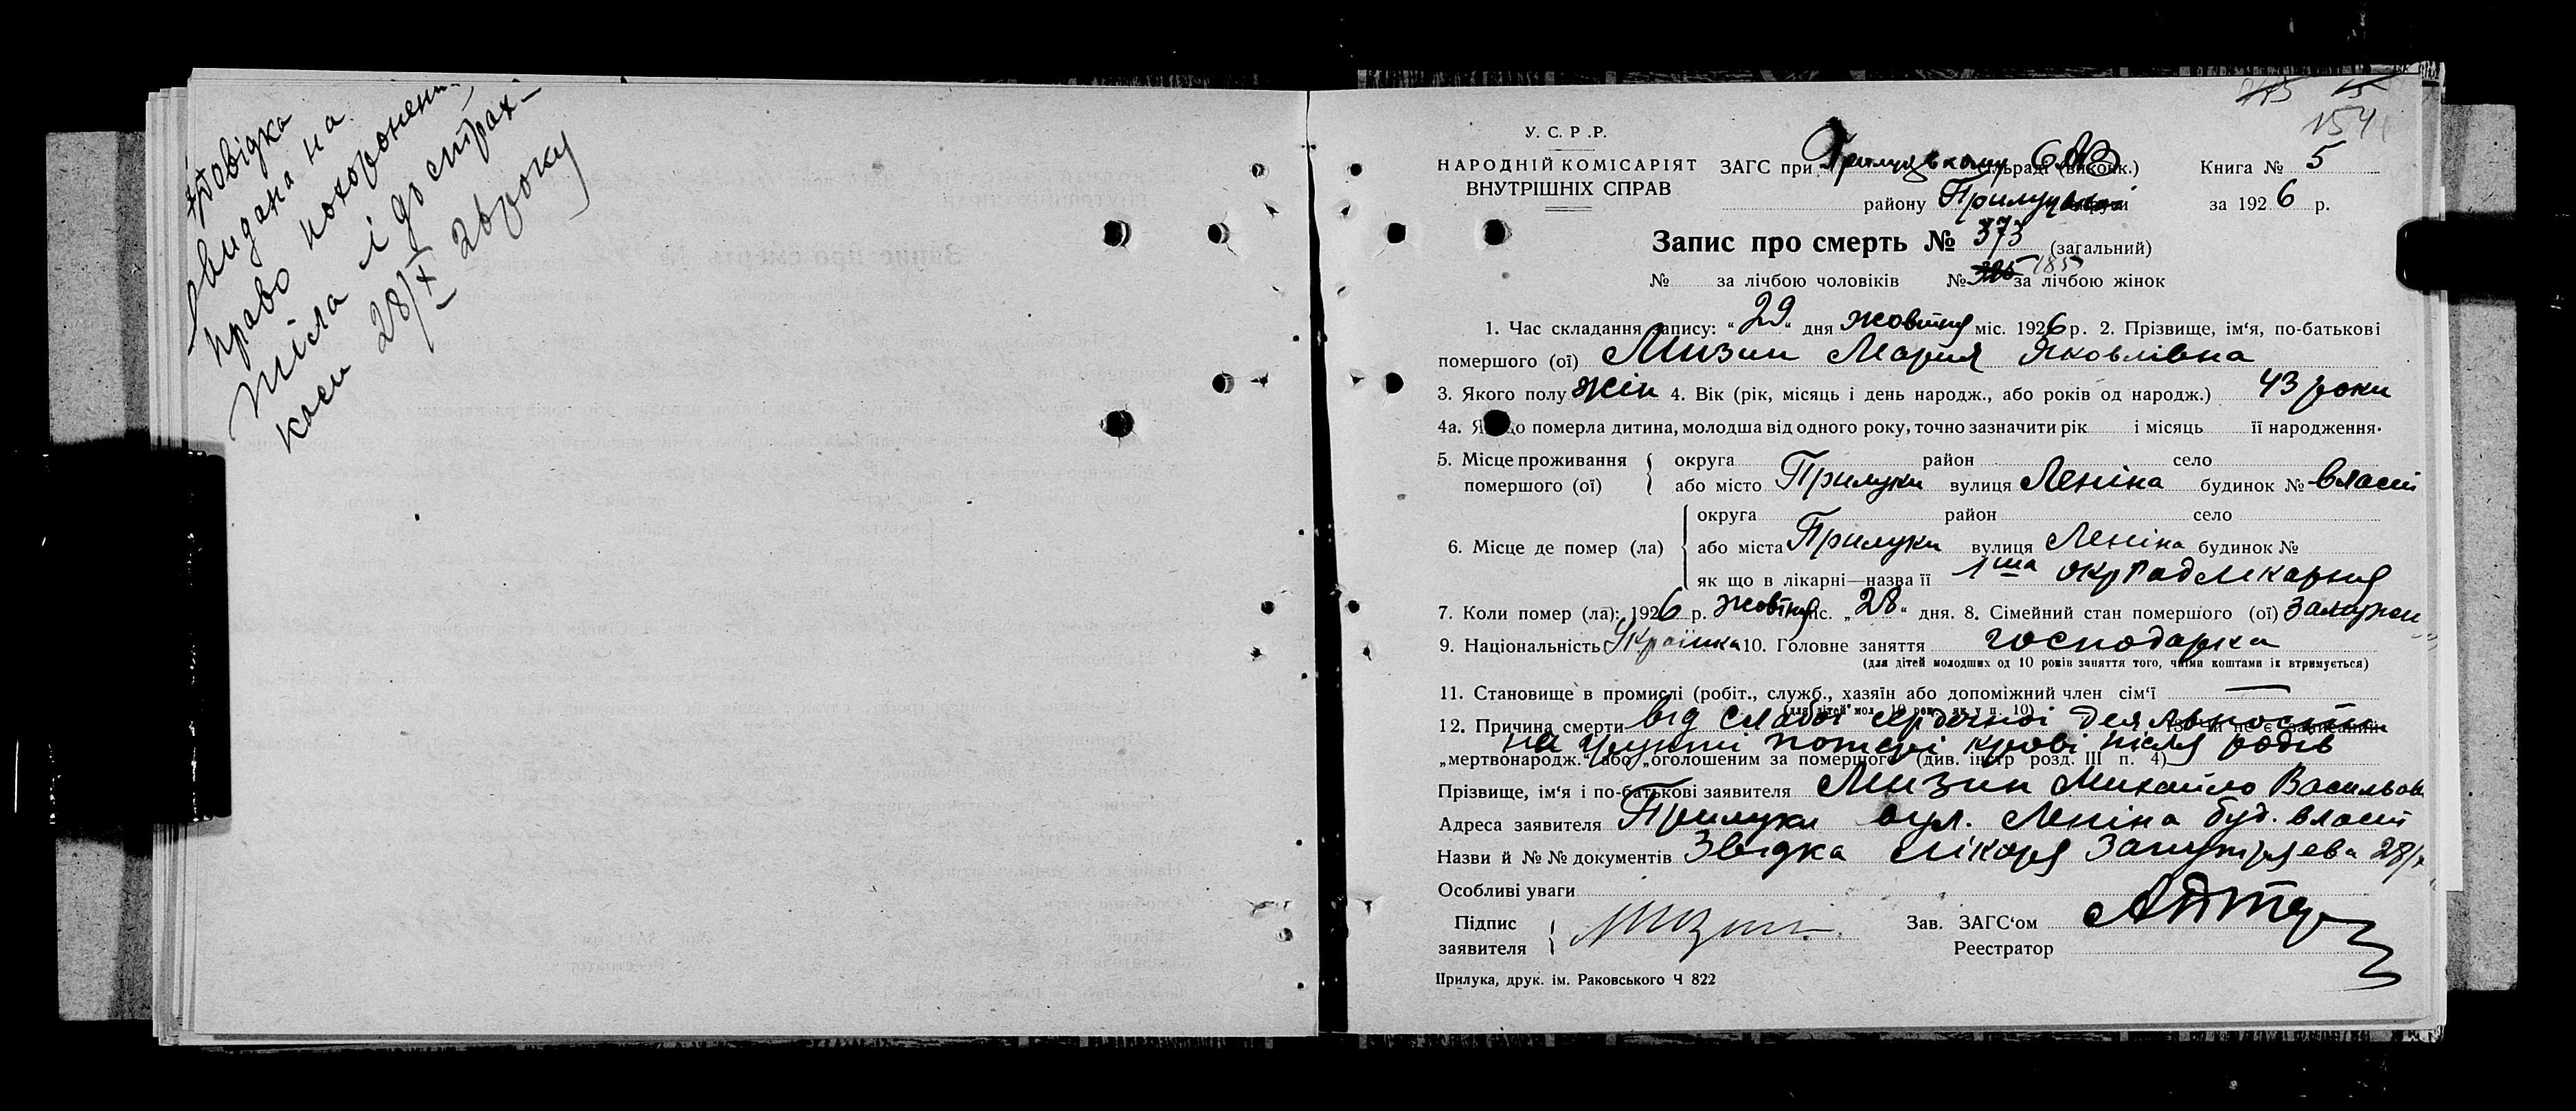 Довідка
видана на
право похоронення
тіла і до страх-
каси 28/X 26 року
154
У. С. Р. Р.
НАРОДНІЙ КОМІСАРІЯТ
ВНУТРІШНІХ СПРАВ
ЗАГС при Прилуцькому сільраді (виконк.)
району Прилуцької округи
Книга № 5
за 1926 р.
Запис про смерть № 373 (загальний)
№ за лічбою чоловіків № 185 за лічбою жінок
1. Час складання запису: “29“ дня жовтня міс. 1926 р. 2. Прізвище, ім‘я, по-батькові
помершого (ої) Мизин Мария Яковлівна
3. Якого полу жін 4. Вік (рік, місяць і день народж., або років од народж.) 43 роки
4а. Якщо померла дитина, молодша від одного року, точно зазначити рік і місяць її народження.
5. Місце проживання помершого (ої) округа район село
або місто Прилуки вулиця Леніна будинок № власн
6. Місце де помер (ла) округа район село
або міста Прилуки вулиця Леніна будинок №
як що в лікарні—назва її 1ша окррадлікарня
7. Коли помер (ла): 1926 р. жовтня міс. „28“ дня. 8. Сімейний стан помершого (ої) замужем
9. Національність Українка 10. Головне заняття господарка
(для дітей молодших од 10 років заняття того, чиїми коштами їх втримується)
11. Становище в промислі (робіт., служб., хазяїн або допоміжний член сім‘ї —
(для дітей мол. 10 рок. як у п. 10)
12. Причина смерти від слабої сердечної деяльности
на ґрунті потері крові після родів
„мертвонародж.“ або „оголошеним за помершого“ (див. інстр розд. III п. 4)
Прізвище, ім‘я і по-батькові заявителя Мизин Михайло Васильов
Адреса заявителя Прилуки вул. Леніна буд. власн
Назви й №№ документів Звідка лікаря 28/X
Особливі уваги
Підпис заявителя Мизин
Зав. ЗАГС‘ом
Реестратор
Прилука, друк. ім. Раковського Ч 822